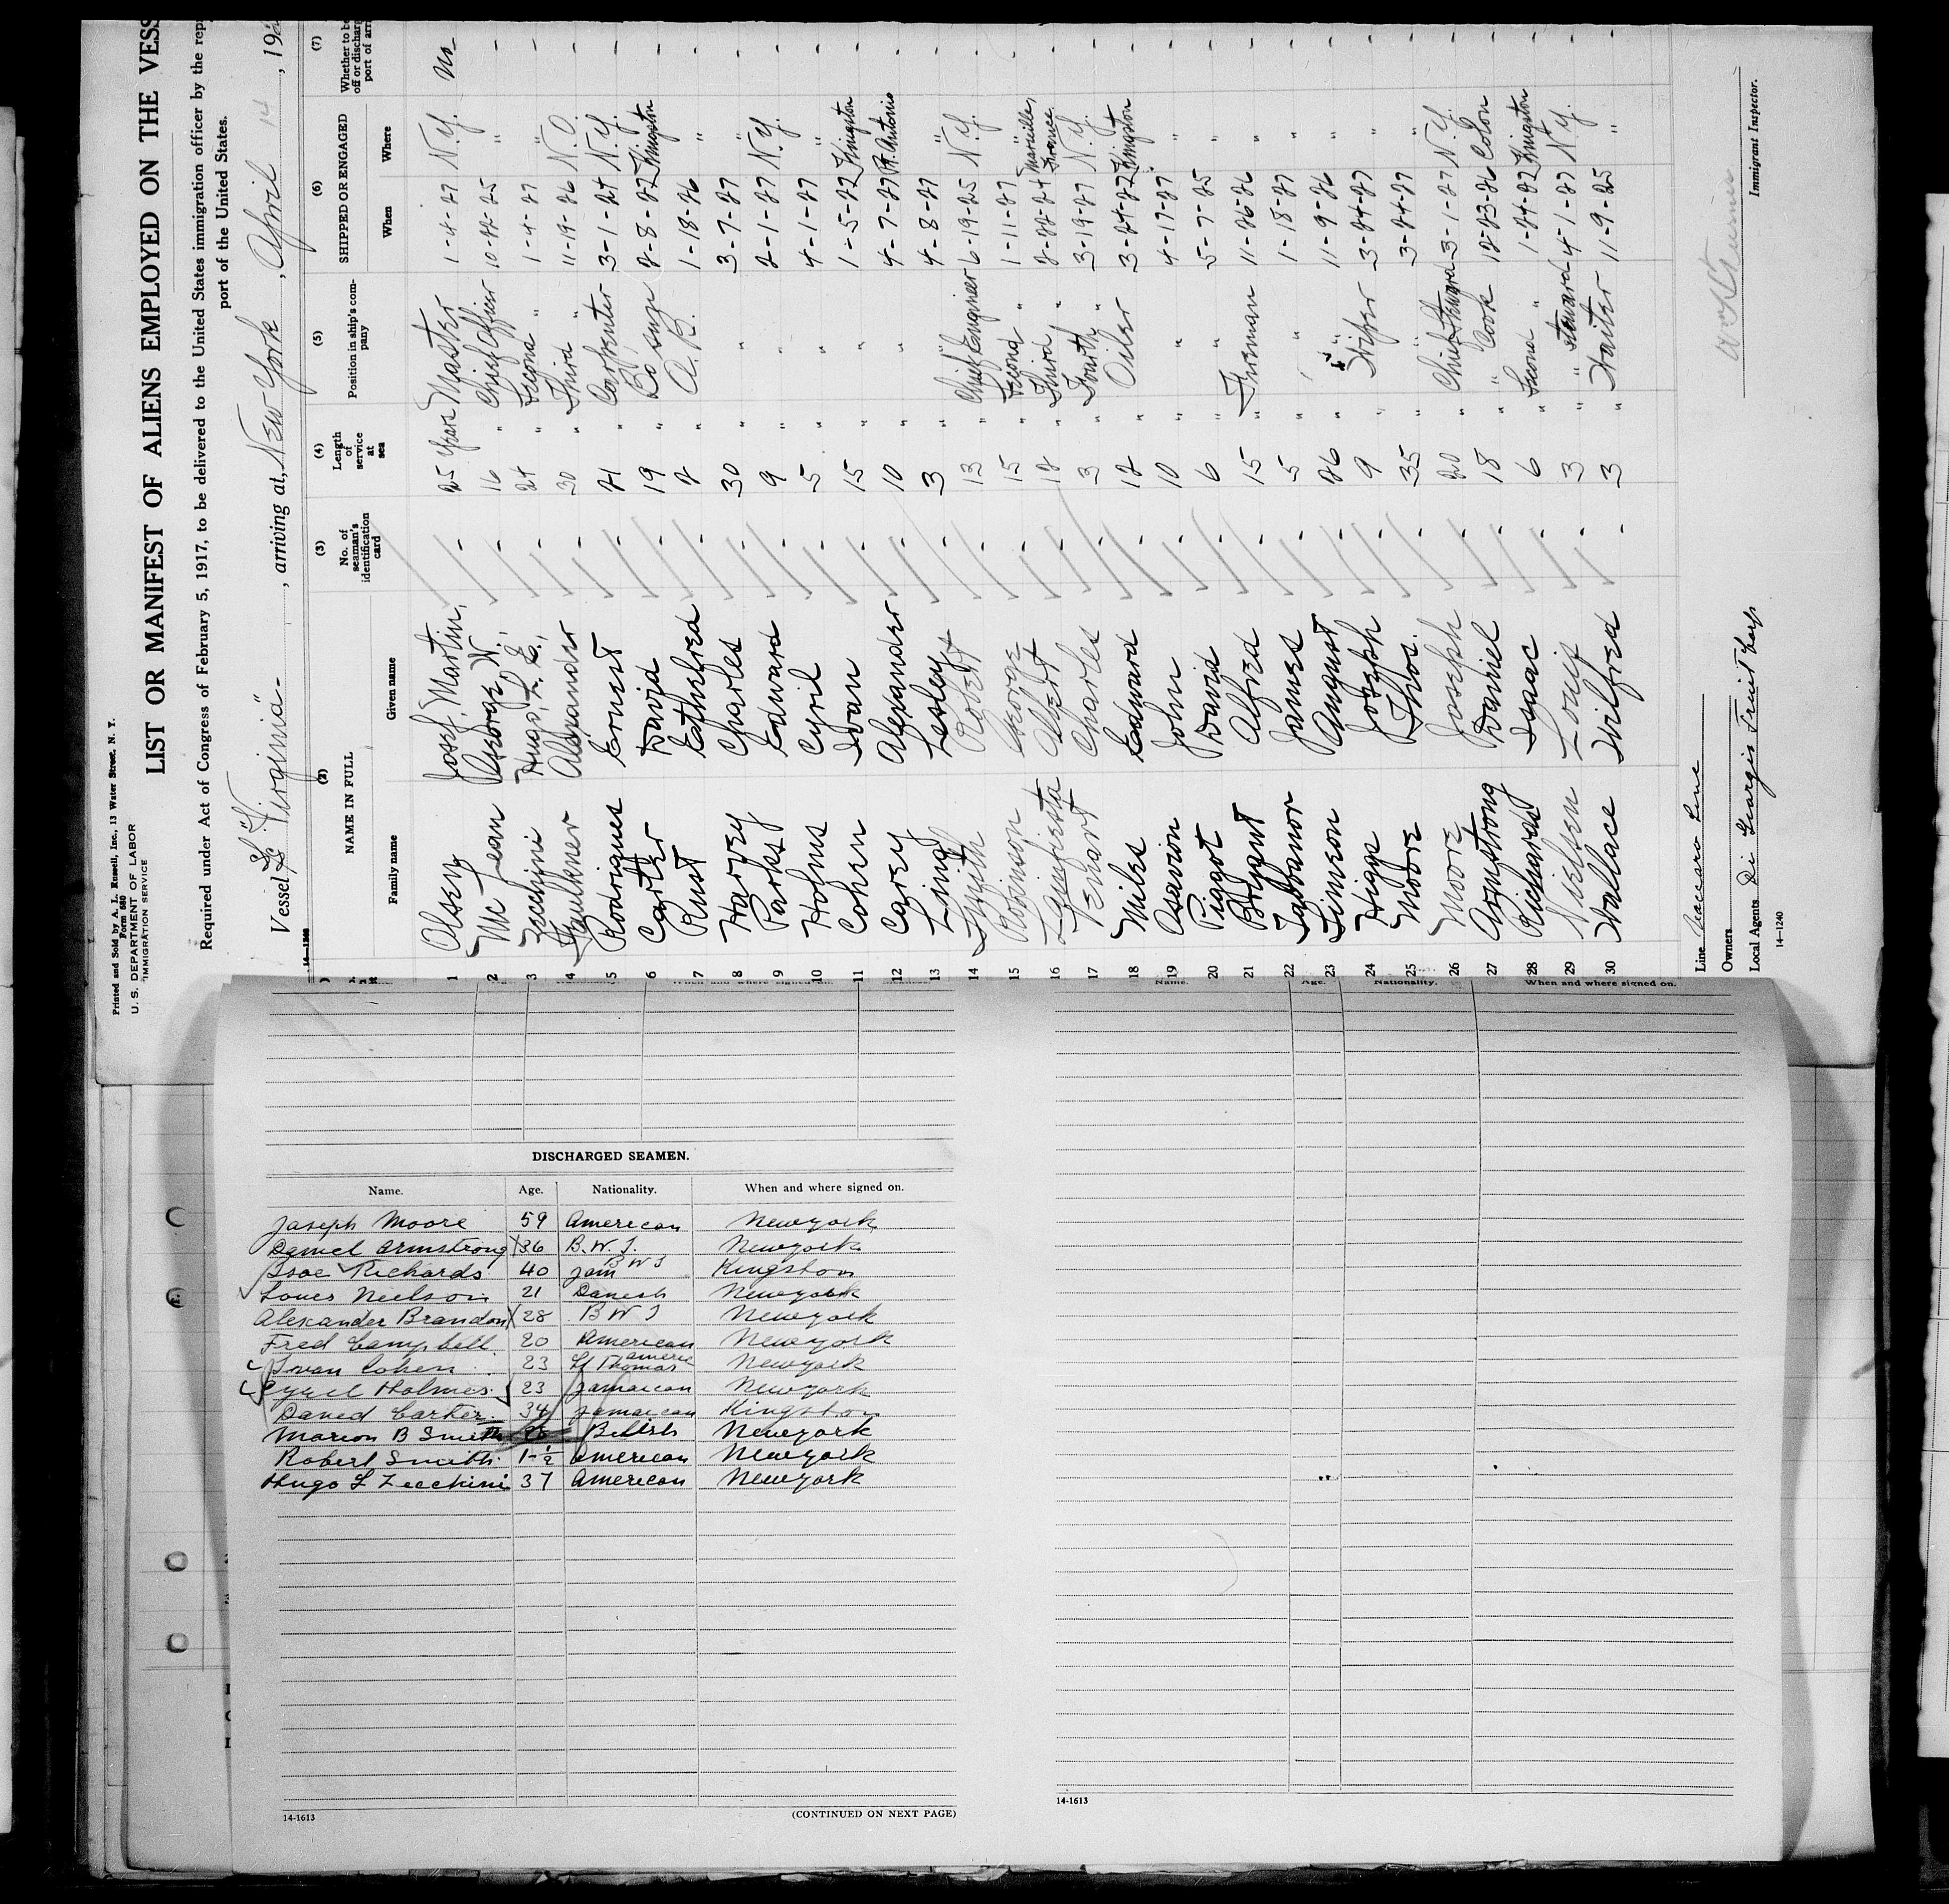 Printed and Sold by A. L. Russell, Inc., 13 Water Street, N. Y.
Form 680
U. S. DEPARTMENT OF LABOR
IMMIGRATION SERVICE
LIST OR MANIFEST OF ALIENS EMPLOYED ON THE VESS
Required under Act of Congress of February 5, 1917, to be delivered to the United States immigration officer by the rep
port of the United States.
Vessel S/S "Virginia" , arriving at, New York , April 14 , 192
(2) (3) (4) (5) (6) (7)
NAME IN FULL No. of seaman's identification card Length of service at sea Position in ship's company SHIPPED OR ENGAGED Whether to be
off or discharg
port of arr
Family name Given name When Where
1 Olsen Josef, Martin, - 25 years Master 1-4-27 N.Y. No-
2 McLean George, N., - 16 " Chief Officer 10-22-25 " -
3 Zecchini Hugo, L. E., - 24 " Second " 1-4-27 " -
4 Faulkner Alexander - 30 " Third " 11-19-26 N.O. -
5 Rodriques Ernest - 21 " Carpenter 3-1-24 N.Y. -
6 Carter David - 19 " Bosun 2-8-22 Kingston -
7 Rust Ethelred - 2 " A.B. 1-18-26 " -
8 Harvey Charles - 30 " " 3-7-27 " -
9 Parks Edward - 9 " " 2-1-27 N.Y. -
10 Holms Cyril - 5 " " 4-1-27 " -
11 Cohen Ivan - 15 " " 1-5-22 Kingston -
12 Carey Alexander - 10 " " 4-7-27 Pt. Antonio -
13 Ling Lesley - 3 " " 4-8-27 " -
14 Smith Robert - 13 " Chief Engineer 6-19-25 N.Y. -
15 Robinson George - 15 " Second " 1-11-27 " -
16 Albert - 12 " Third " 2-22-24 Marseilles, France. -
17 Charles - 3 " Fourth " 3-19-27 N.Y. -
18 Miles Edward - 12 " Oiler 3-24-22 Kingston -
19 John - 10 " " 4-17-27 " -
20 Piggot David - 6 " " 5-7-25 " -
21 Bryant Alfred - 15 " Fireman 11-26-26 " -
22 Tabbanor James - 5 " " 1-18-27 " -
23 Simeon August - 26 " " 11-9-26 " -
24 Higgs Joseph - 9 " Wiper 3-24-27 " -
25 Moore Thos. - 35 " " 3-24-27 " -
26 Moore Joseph - 20 " Chief Steward 3-1-27 N.Y. -
27 Armstrong Daniel - 18 " " Cook 12-23-26 Colon -
28 Richards Isaac - 6 " Second " 1-24-22 Kingston -
29 Nielsen Louis - 3 " " Steward 4-1-27 N.Y. -
30 Wallace Wilfred - 3 " Waiter 11-9-25 " -
Line Vaccaro Line
Owners
Local Agents Di Giorgio Fruit Corp
14-1240
Immigrant Inspector.
Name. Age. Nationality. When and where signed on.
DISCHARGED SEAMEN.
Name. Age. Nationality. When and where signed on.
Joseph Moore 59 American Newyork
Daniel Armstrong 36 B.W.I. Newyork
Isac Richards 40 Jam B W I Kingston
Loues Neelson 21 Danesh Newyork
Alexander Brandon 28 B W I Newyork
Fred Campbell 20 American Newyork
Ivan Cohen 23 St Thomas Americ Newyork
Cyril Holmes 23 Jamaican Newyork
David Carter 34 Jamaican Kingston
Marion B Smith Newyork
Robert Smith 1-½ American Newyork
Hugo L Zecchini 37 American Newyork
14-1613 (CONTINUED ON NEXT PAGE)
14-1613